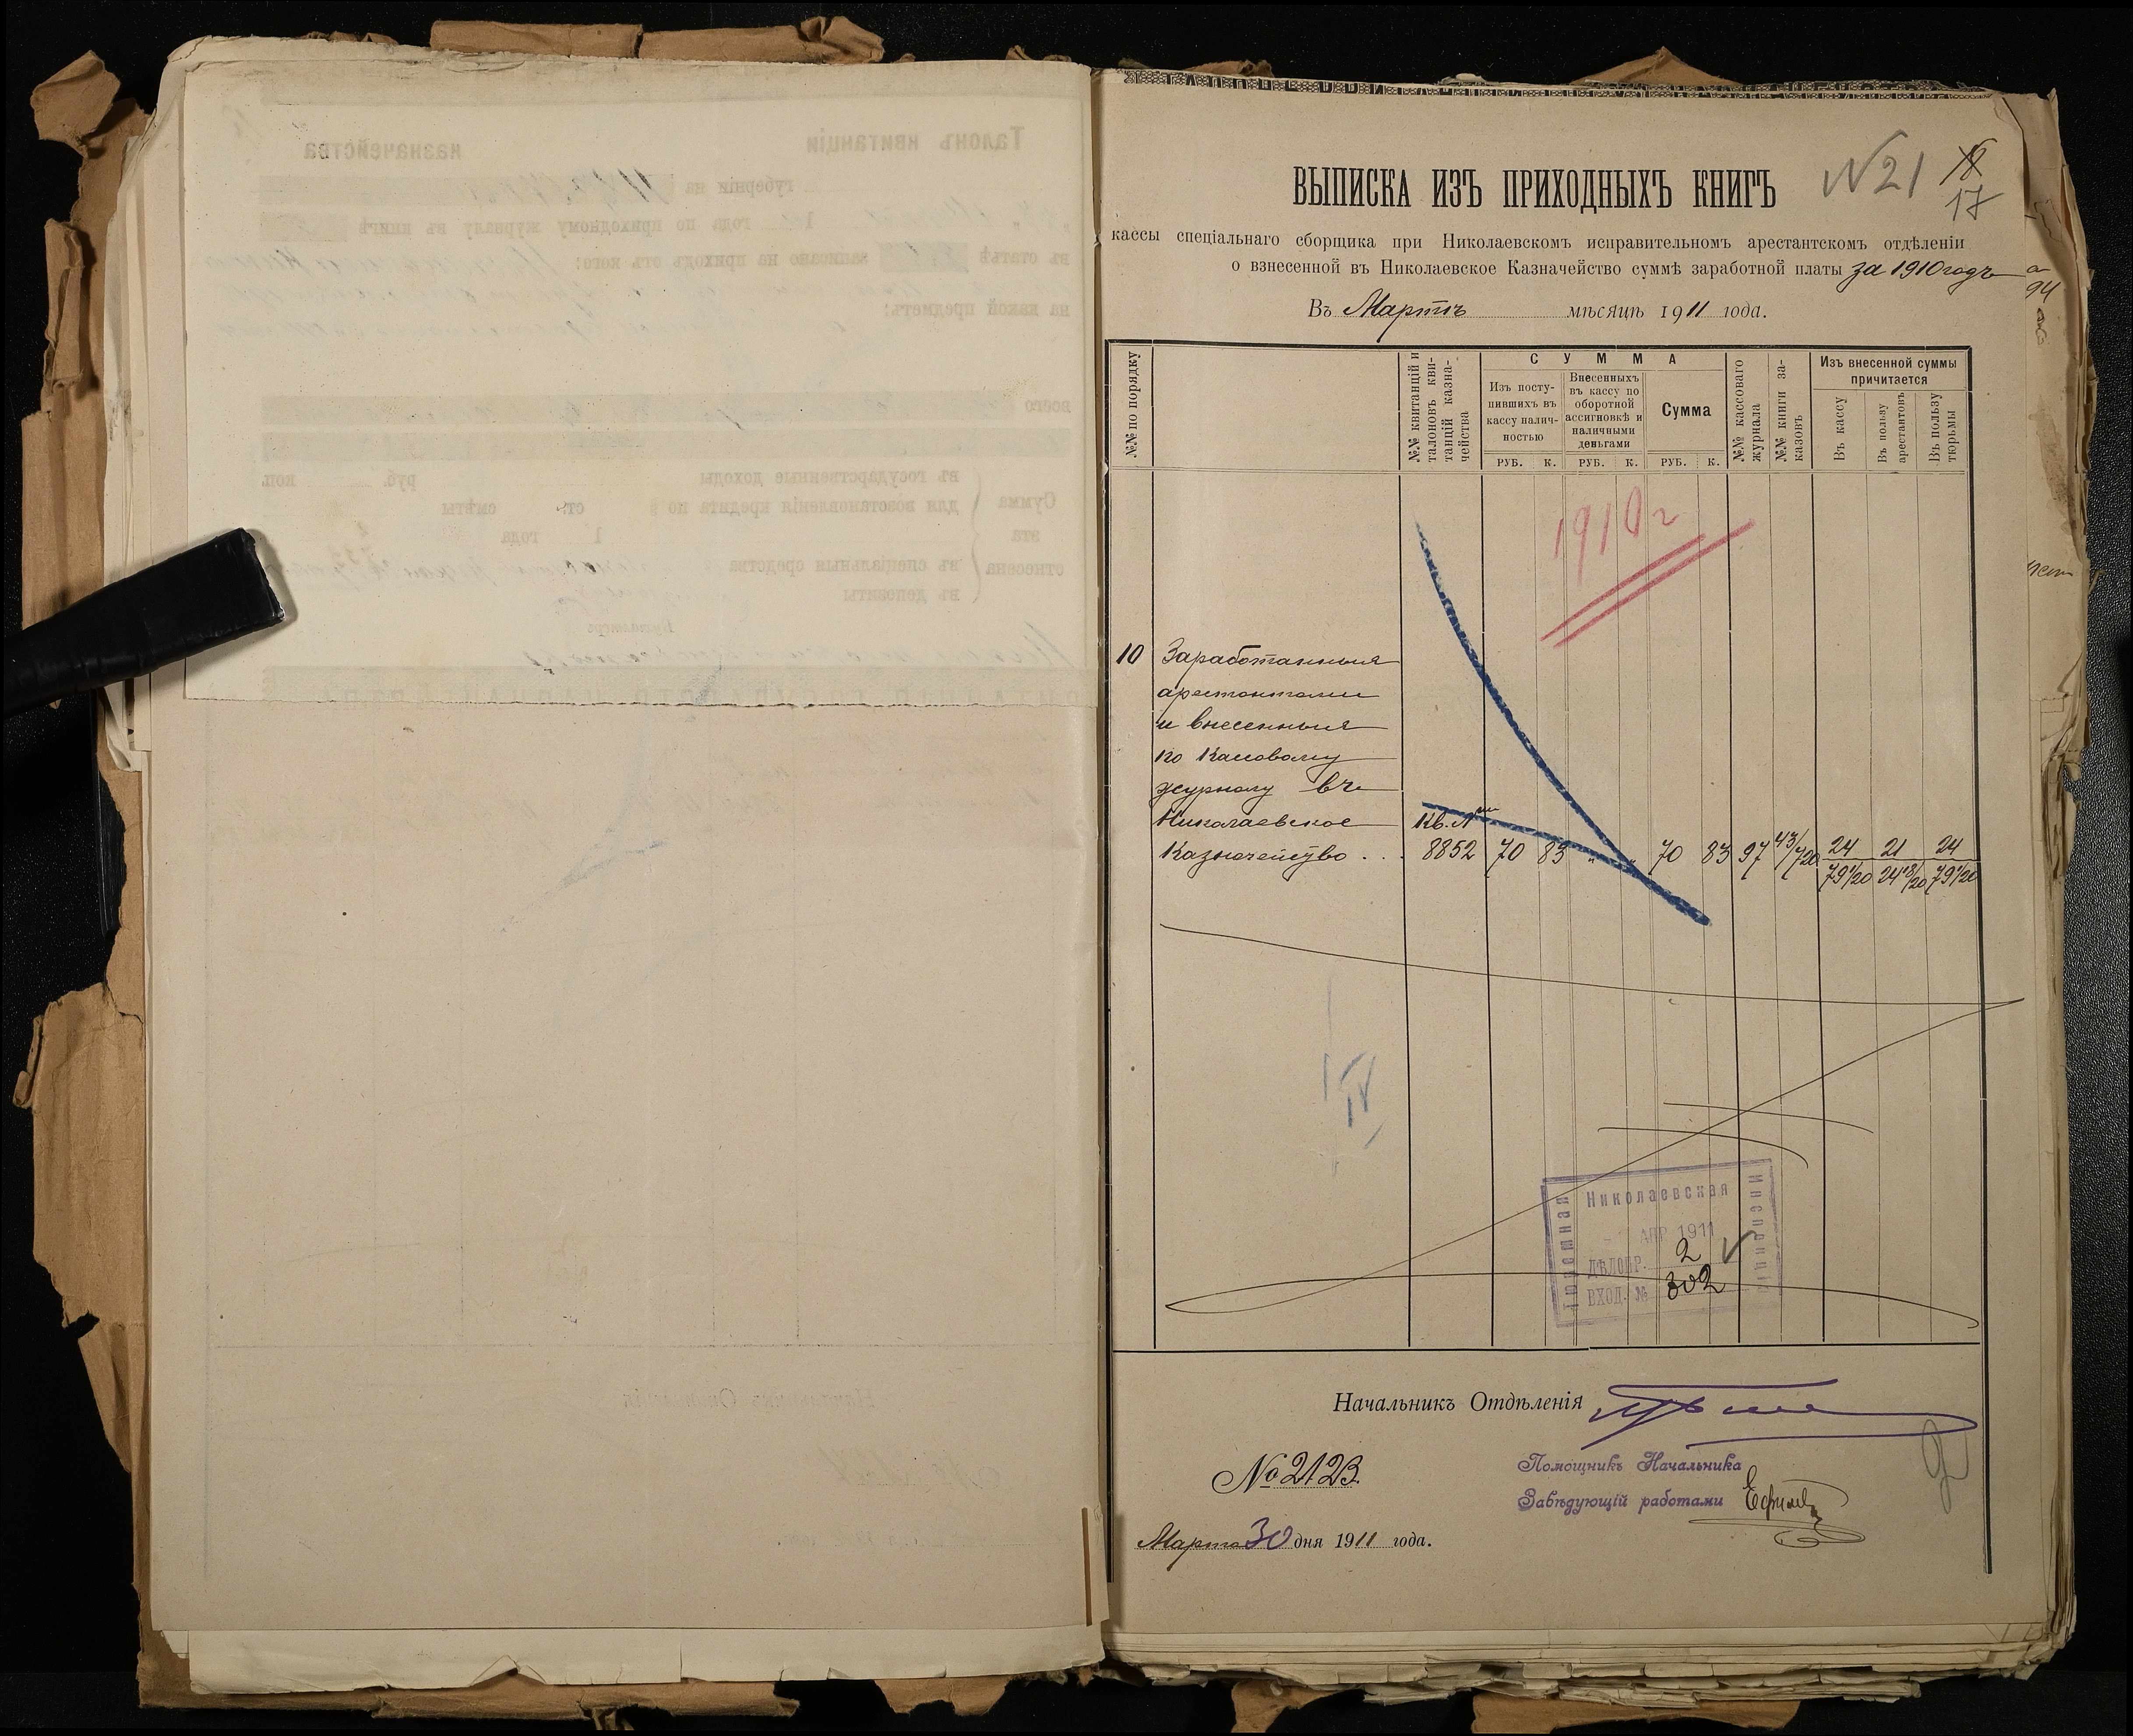 ВЫПИСКА ИЗЪ ПРИХОДНЫХЪ КНИГЪ
№21
18
17
кассы спеціальнаго сборщика при Николаевскомъ исправительномъ арестантскомъ отдѣленіи
о взнесенной въ Николаевское Казначейство суммѣ заработной платы за 1910 годъ
Въ Мартѣ мѣсяцѣ 1911 года.
№№ по порядку
№№ квитанцій и талоновъ кви-
танцій казна-
чейства
СУММА
Изъ посту-
пившихъ въ
кассу налич-
ностью
Внесенныхъ
въ кассу по
оборотной
ассигновкѣ и
наличными
деньгами
Сумма
РУБ. К. РУБ. К. РУБ. К.
№№ кассоваго
журнала
№№ книги за-
казовъ
Изъ внесенной суммы
причитается
Въ кассу
Въ пользу
арестантовъ
Въ пользу
тюрьмы
1910 г
10 Заработанныя
арестантами
и внесенныя
по Кассовому
журналу въ
Николаевское Кв. №
Казначейство . . . 8852 70 83 " " 70 83 97 43/720 24 21 24
79 1/20 24 18/20 79 1/20
IV
Николаевская
Тюремная
Инспекція
АПР 1911
ДѢЛОПР. 2
ВХОД. № 302
Начальникъ Отдѣленія
№ 2123
Помощникъ Начальника
Завѣдующій работами
Марта 30 дня 1911 года.
Талонъ квитанціи назначейства
губерніи на
года по приходному журналу въ книгѣ
въ статьѣ записано на приходъ отъ кого:
на какой предметъ:
всего
Сумма
эта
отнесена
въ государственные доходы руб. коп.
для возстановленія кредита по ст. смѣты
1 года
въ спеціальныя средства
въ депозиты